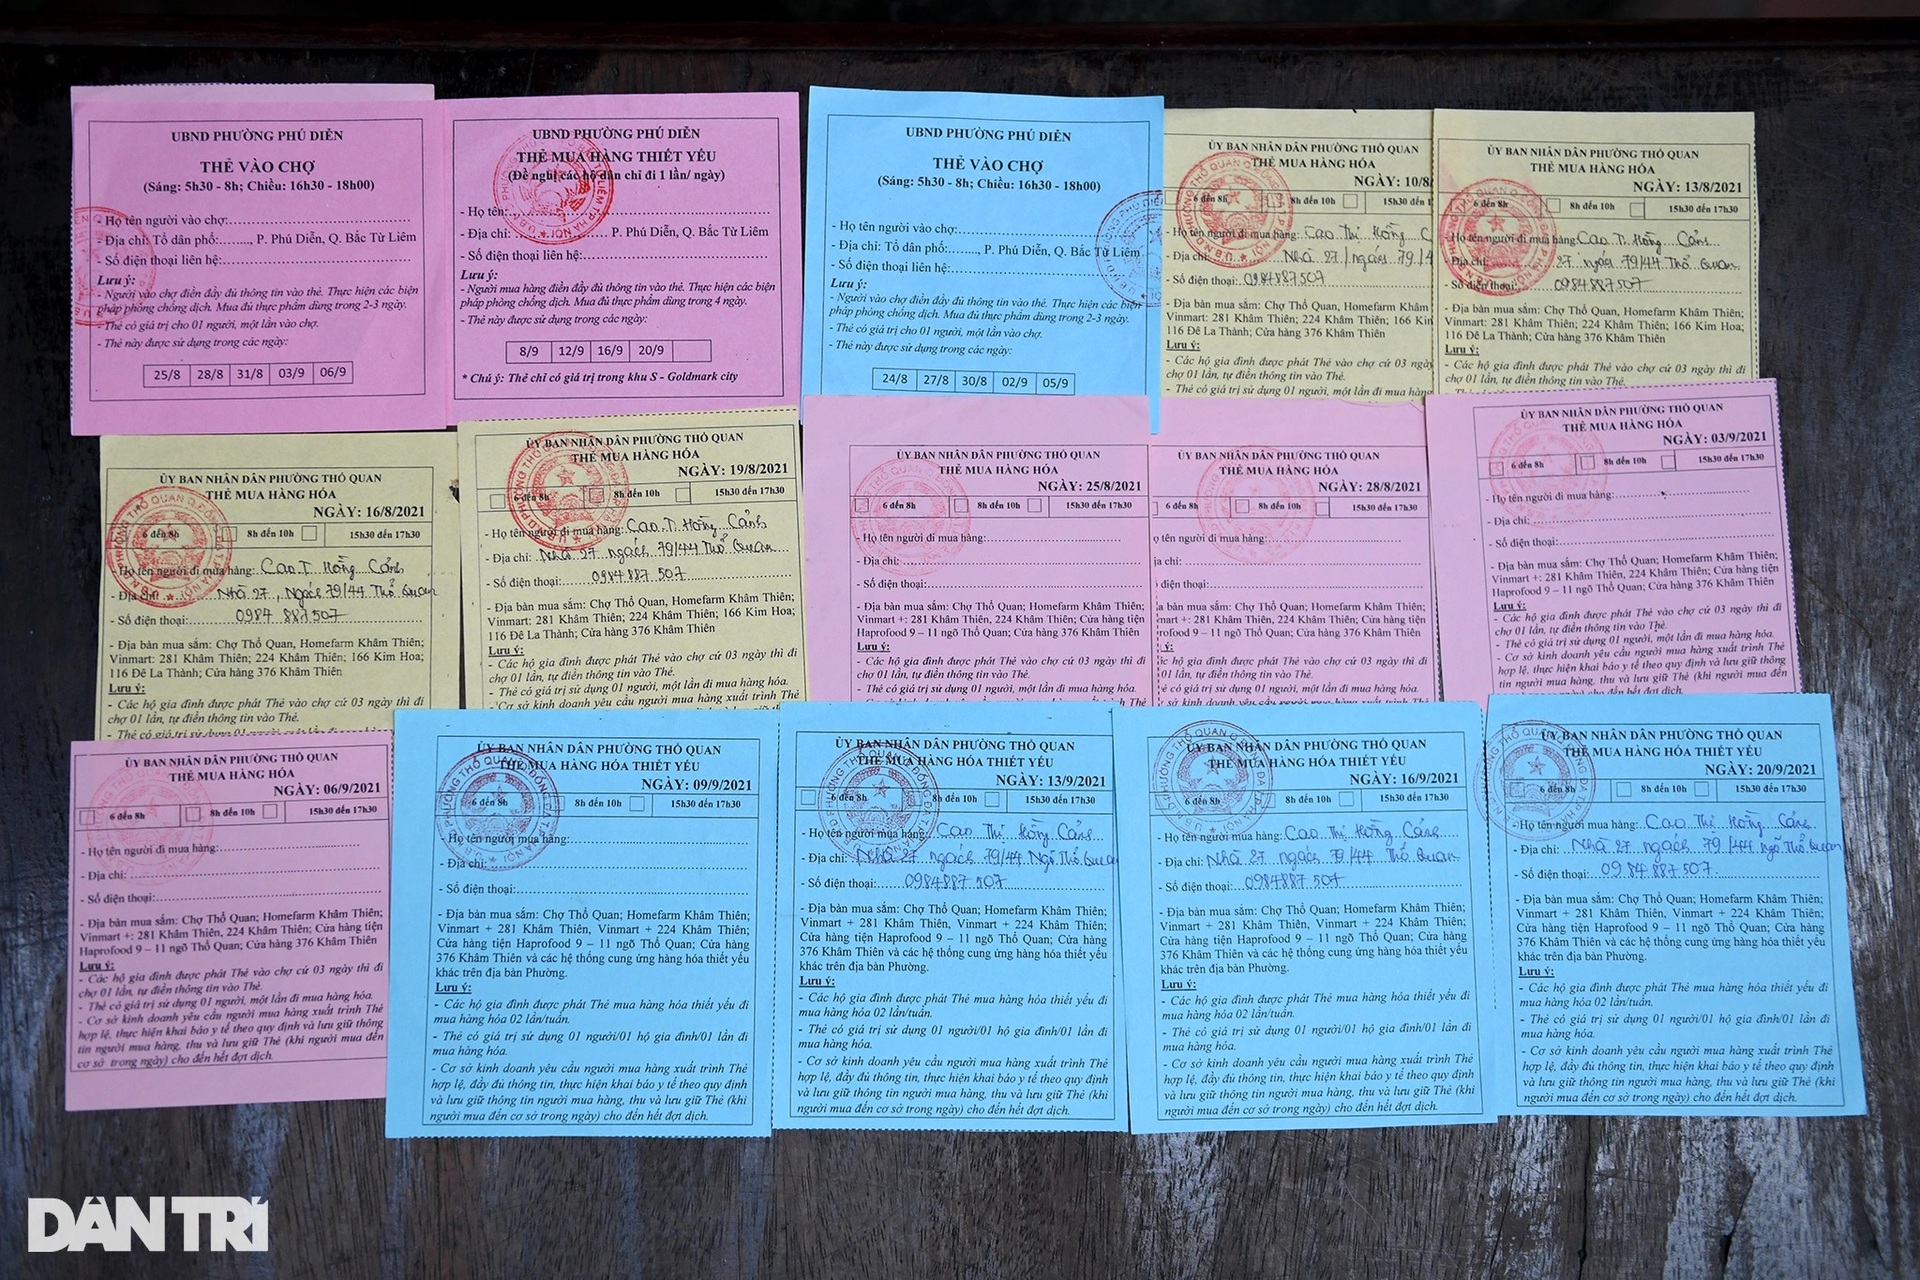 UBND PHƯỜNG PHÚ DIỄN
THẺ VÀO CHỢ
(Sáng: 5h30 - 8h; Chiều: 16h30 - 18h00)
- Họ tên người vào chợ:
- Địa chỉ: Tổ dân phố:........, P. Phú Diễn, Q. Bắc Từ Liêm
- Số điện thoại liên hệ:
Lưu ý:
- Người vào chợ điền đầy đủ thông tin vào thẻ. Thực hiện các biện
pháp phòng chống dịch. Mua đủ thực phẩm dùng trong 2-3 ngày.
- Thẻ có giá trị cho 01 người, một lần vào chợ.
- Thẻ này được sử dụng trong các ngày:
25/8 28/8 31/8 03/9 06/9
UBND PHƯỜNG PHÚ DIỄN
THẺ MUA HÀNG THIẾT YẾU
(Đề nghị các hộ dân chỉ đi 1 lần/ ngày)
- Họ tên:
- Địa chỉ: P. Phú Diễn, Q. Bắc Từ Liêm
- Số điện thoại liên hệ:
Lưu ý:
- Người mua hàng điền đầy đủ thông tin vào thẻ. Thực hiện các biện
pháp phòng chống dịch. Mua đủ thực phẩm dùng trong 4 ngày.
- Thẻ này được sử dụng trong các ngày:
8/9 12/9 16/9 20/9
* Chú ý: Thẻ chỉ có giá trị trong khu S - Goldmark city
UBND PHƯỜNG PHÚ DIỄN
THẺ VÀO CHỢ
(Sáng: 5h30 - 8h; Chiều: 16h30 - 18h00)
- Họ tên người vào chợ:
- Địa chỉ: Tổ dân phố:........, P. Phú Diễn, Q. Bắc Từ Liêm
- Số điện thoại liên hệ:
Lưu ý:
- Người vào chợ điền đầy đủ thông tin vào thẻ. Thực hiện các biện
pháp phòng chống dịch. Mua đủ thực phẩm dùng trong 2-3 ngày.
- Thẻ có giá trị cho 01 người, một lần vào chợ.
- Thẻ này được sử dụng trong các ngày:
24/8 27/8 30/8 02/9 05/9
ỦY BAN NHÂN DÂN PHƯỜNG THỔ QUAN
THẺ MUA HÀNG HÓA
NGÀY: 10/8
6 đến 8h 8h đến 10h 15h30 đến 1
- Họ tên người đi mua hàng: Cao Thị Hồng
- Địa chỉ: Nhà 27/ngách 79/4
- Số điện thoại: 0984887507
- Địa bàn mua sắm: Chợ Thổ Quan, Homefarm Khâm
Vinmart: 281 Khâm Thiên; 224 Khâm Thiên; 166 Kim
116 Đê La Thành; Cửa hàng 376 Khâm Thiên
Lưu ý:
- Các hộ gia đình được phát Thẻ vào chợ cứ 03 ngày
chợ 01 lần, tự điền thông tin vào Thẻ.
- Thẻ có giá trị sử dụng 01 người, một lần đi mua hàng
ỦY BAN NHÂN DÂN PHƯỜNG THỔ QUAN
THẺ MUA HÀNG HÓA
NGÀY: 13/8/2021
6 đến 8h 8h đến 10h 15h30 đến 17h30
- Họ tên người đi mua hàng: Cao T. Hồng Cảnh
- Địa chỉ: 27 ngách 79/44 Thổ Quan
- Số điện thoại: 0984887507
- Địa bàn mua sắm: Chợ Thổ Quan, Homefarm Khâm Thiên,
Vinmart: 281 Khâm Thiên; 224 Khâm Thiên; 166 Kim Hoa;
116 Đê La Thành; Cửa hàng 376 Khâm Thiên
Lưu ý:
- Các hộ gia đình được phát Thẻ vào chợ cứ 03 ngày thì đi
chợ 01 lần, tự điền thông tin vào Thẻ.
- Thẻ có giá trị sử dụng 01 người, một lần đi mua hàng hóa.
ỦY BAN NHÂN DÂN PHƯỜNG THỔ QUAN
THẺ MUA HÀNG HÓA
NGÀY: 16/8/2021
6 đến 8h 8h đến 10h 15h30 đến 17h30
- Họ tên người đi mua hàng: Cao T Hồng Cảnh
- Địa chỉ: Nhà 27, Ngách 79/44 Thổ Quan
- Số điện thoại: 0984 887507
- Địa bàn mua sắm: Chợ Thổ Quan, Homefarm Khâm Thiên,
Vinmart: 281 Khâm Thiên; 224 Khâm Thiên; 166 Kim Hoa;
116 Đê La Thành; Cửa hàng 376 Khâm Thiên
Lưu ý:
- Các hộ gia đình được phát Thẻ vào chợ cứ 03 ngày thì đi
chợ 01 lần, tự điền thông tin vào Thẻ.
- Thẻ có giá trị sử dụng 01 người, một lần đi mua hàng hóa.
ỦY BAN NHÂN DÂN PHƯỜNG THỔ QUAN
THẺ MUA HÀNG HÓA
NGÀY: 19/8/2021
6 đến 8h 8h đến 10h 15h30 đến 17h30
- Họ tên người đi mua hàng: Cao T. Hồng Cảnh
- Địa chỉ: Nhà 27 ngách 79/44 Thổ Quan
- Số điện thoại: 0984887 507
- Địa bàn mua sắm: Chợ Thổ Quan, Homefarm Khâm Thiên,
Vinmart: 281 Khâm Thiên; 224 Khâm Thiên; 166 Kim Hoa;
116 Đê La Thành; Cửa hàng 376 Khâm Thiên
Lưu ý:
- Các hộ gia đình được phát Thẻ vào chợ cứ 03 ngày thì đi
chợ 01 lần, tự điền thông tin vào Thẻ.
- Thẻ có giá trị sử dụng 01 người, một lần đi mua hàng hóa.
- Cơ sở kinh doanh yêu cầu người mua hàng xuất trình Thẻ
ỦY BAN NHÂN DÂN PHƯỜNG THỔ QUAN
THẺ MUA HÀNG HÓA
NGÀY: 25/8/2021
6 đến 8h 8h đến 10h 15h30 đến 17h30
- Họ tên người đi mua hàng:
- Địa chỉ:
- Số điện thoại:
- Địa bàn mua sắm: Chợ Thổ Quan; Homefarm Khâm Thiên;
Vinmart +: 281 Khâm Thiên, 224 Khâm Thiên; Cửa hàng tiện
Haprofood 9 – 11 ngõ Thổ Quan; Cửa hàng 376 Khâm Thiên
Lưu ý:
- Các hộ gia đình được phát Thẻ vào chợ cứ 03 ngày thì đi
chợ 01 lần, tự điền thông tin vào Thẻ.
- Thẻ có giá trị sử dụng 01 người, một lần đi mua hàng hóa.
ỦY BAN NHÂN DÂN PHƯỜNG THỔ QUAN
THẺ MUA HÀNG HÓA
NGÀY: 28/8/2021
8h đến 10h 15h30 đến 17h30
ọ tên người đi mua hàng:
ịa chỉ:
điện thoại:
a bàn mua sắm: Chợ Thổ Quan; Homefarm Khâm Thiên;
mart +: 281 Khâm Thiên, 224 Khâm Thiên; Cửa hàng tiện
rofood 9 – 11 ngõ Thổ Quan; Cửa hàng 376 Khâm Thiên
ý:
c hộ gia đình được phát Thẻ vào chợ cứ 03 ngày thì đi
01 lần, tự điền thông tin vào Thẻ.
ẻ có giá trị sử dụng 01 người, một lần đi mua hàng hóa.
ỦY BAN NHÂN DÂN PHƯỜNG THỔ QUAN
THẺ MUA HÀNG HÓA
NGÀY: 03/9/2021
6 đến 8h 8h đến 10h 15h30 đến 17h30
- Họ tên người đi mua hàng:
- Địa chỉ:
- Số điện thoại:
- Địa bàn mua sắm: Chợ Thổ Quan; Homefarm Khâm Thiên;
Vinmart +: 281 Khâm Thiên, 224 Khâm Thiên; Cửa hàng tiện
Haprofood 9 – 11 ngõ Thổ Quan; Cửa hàng 376 Khâm Thiên
Lưu ý:
- Các hộ gia đình được phát Thẻ vào chợ cứ 03 ngày thì đi
chợ 01 lần, tự điền thông tin vào Thẻ.
- Thẻ có giá trị sử dụng 01 người, một lần đi mua hàng hóa.
- Cơ sở kinh doanh yêu cầu người mua hàng xuất trình Thẻ
hợp lệ, thực hiện khai báo y tế theo quy định và lưu giữ thông
tin người mua hàng, thu và lưu giữ Thẻ (khi người mua đến
cơ sở trong ngày) cho đến hết đợt dịch.
ỦY BAN NHÂN DÂN PHƯỜNG THỔ QUAN
THẺ MUA HÀNG HÓA
NGÀY: 06/9/2021
6 đến 8h 8h đến 10h 15h30 đến 17h30
- Họ tên người đi mua hàng:
- Địa chỉ:
- Số điện thoại:
- Địa bàn mua sắm: Chợ Thổ Quan; Homefarm Khâm Thiên;
Vinmart +: 281 Khâm Thiên, 224 Khâm Thiên; Cửa hàng tiện
Haprofood 9 – 11 ngõ Thổ Quan; Cửa hàng 376 Khâm Thiên
Lưu ý:
- Các hộ gia đình được phát Thẻ vào chợ cứ 03 ngày thì đi
chợ 01 lần, tự điền thông tin vào Thẻ.
- Thẻ có giá trị sử dụng 01 người, một lần đi mua hàng hóa.
- Cơ sở kinh doanh yêu cầu người mua hàng xuất trình Thẻ
hợp lệ, thực hiện khai báo y tế theo quy định và lưu giữ thông
tin người mua hàng, thu và lưu giữ Thẻ (khi người mua đến
cơ sở trong ngày) cho đến hết đợt dịch.
ỦY BAN NHÂN DÂN PHƯỜNG THỔ QUAN
THẺ MUA HÀNG HÓA THIẾT YẾU
NGÀY: 09/9/2021
6 đến 8h 8h đến 10h 15h30 đến 17h30
- Họ tên người mua hàng:
- Địa chỉ:
- Số điện thoại:
- Địa bàn mua sắm: Chợ Thổ Quan; Homefarm Khâm Thiên;
Vinmart + 281 Khâm Thiên, Vinmart + 224 Khâm Thiên;
Cửa hàng tiện Haprofood 9 – 11 ngõ Thổ Quan; Cửa hàng
376 Khâm Thiên và các hệ thống cung ứng hàng hóa thiết yếu
khác trên địa bàn Phường.
Lưu ý:
- Các hộ gia đình được phát Thẻ mua hàng hóa thiết yếu đi
mua hàng hóa 02 lần/tuần.
- Thẻ có giá trị sử dụng 01 người/01 hộ gia đình/01 lần đi
mua hàng hóa.
- Cơ sở kinh doanh yêu cầu người mua hàng xuất trình Thẻ
hợp lệ, đầy đủ thông tin, thực hiện khai báo y tế theo quy định
và lưu giữ thông tin người mua hàng, thu và lưu giữ Thẻ (khi
người mua đến cơ sở trong ngày) cho đến hết đợt dịch.
ỦY BAN NHÂN DÂN PHƯỜNG THỔ QUAN
THẺ MUA HÀNG HÓA THIẾT YẾU
NGÀY: 13/9/2021
6 đến 8h 8h đến 10h 15h30 đến 17h30
- Họ tên người mua hàng: Cao Thị Hồng Cảnh
- Địa chỉ: Nhà 27 ngách 79/44 Ngõ Thổ Quan
- Số điện thoại: 0984887 507
- Địa bàn mua sắm: Chợ Thổ Quan; Homefarm Khâm Thiên;
Vinmart + 281 Khâm Thiên, Vinmart + 224 Khâm Thiên;
Cửa hàng tiện Haprofood 9 – 11 ngõ Thổ Quan; Cửa hàng
376 Khâm Thiên và các hệ thống cung ứng hàng hóa thiết yếu
khác trên địa bàn Phường.
Lưu ý:
- Các hộ gia đình được phát Thẻ mua hàng hóa thiết yếu đi
mua hàng hóa 02 lần/tuần.
- Thẻ có giá trị sử dụng 01 người/01 hộ gia đình/01 lần đi
mua hàng hóa.
- Cơ sở kinh doanh yêu cầu người mua hàng xuất trình Thẻ
hợp lệ, đầy đủ thông tin, thực hiện khai báo y tế theo quy định
và lưu giữ thông tin người mua hàng, thu và lưu giữ Thẻ (khi
người mua đến cơ sở trong ngày) cho đến hết đợt dịch.
ỦY BAN NHÂN DÂN PHƯỜNG THỔ QUAN
THẺ MUA HÀNG HÓA THIẾT YẾU
NGÀY: 16/9/2021
6 đến 8h 8h đến 10h 15h30 đến 17h30
- Họ tên người mua hàng: Cao Thị Hồng Cảnh
- Địa chỉ: Nhà 27 ngách 79/44 Thổ Quan
- Số điện thoại: 0984887 507
- Địa bàn mua sắm: Chợ Thổ Quan; Homefarm Khâm Thiên;
Vinmart + 281 Khâm Thiên, Vinmart + 224 Khâm Thiên;
Cửa hàng tiện Haprofood 9 – 11 ngõ Thổ Quan; Cửa hàng
376 Khâm Thiên và các hệ thống cung ứng hàng hóa thiết yếu
khác trên địa bàn Phường.
Lưu ý:
- Các hộ gia đình được phát Thẻ mua hàng hóa thiết yếu đi
mua hàng hóa 02 lần/tuần.
- Thẻ có giá trị sử dụng 01 người/01 hộ gia đình/01 lần đi
mua hàng hóa.
- Cơ sở kinh doanh yêu cầu người mua hàng xuất trình Thẻ
hợp lệ, đầy đủ thông tin, thực hiện khai báo y tế theo quy định
và lưu giữ thông tin người mua hàng, thu và lưu giữ Thẻ (khi
người mua đến cơ sở trong ngày) cho đến hết đợt dịch.
ỦY BAN NHÂN DÂN PHƯỜNG THỔ QUAN
THẺ MUA HÀNG HÓA THIẾT YẾU
NGÀY: 20/9/2021
6 đến 8h 8h đến 10h 15h30 đến 17h30
- Họ tên người mua hàng: Cao Thị Hồng Cảnh
- Địa chỉ: Nhà 27 ngách 79/44 ngõ Thổ Quan
- Số điện thoại: 0984887507.
- Địa bàn mua sắm: Chợ Thổ Quan; Homefarm Khâm Thiên;
Vinmart + 281 Khâm Thiên, Vinmart + 224 Khâm Thiên;
Cửa hàng tiện Haprofood 9 – 11 ngõ Thổ Quan; Cửa hàng
376 Khâm Thiên và các hệ thống cung ứng hàng hóa thiết yếu
khác trên địa bàn Phường.
Lưu ý:
- Các hộ gia đình được phát Thẻ mua hàng hóa thiết yếu đi
mua hàng hóa 02 lần/tuần.
- Thẻ có giá trị sử dụng 01 người/01 hộ gia đình/01 lần đi
mua hàng hóa.
- Cơ sở kinh doanh yêu cầu người mua hàng xuất trình Thẻ
hợp lệ, đầy đủ thông tin, thực hiện khai báo y tế theo quy định
và lưu giữ thông tin người mua hàng, thu và lưu giữ Thẻ (khi
người mua đến cơ sở trong ngày) cho đến hết đợt dịch.
DÂN TRÍ